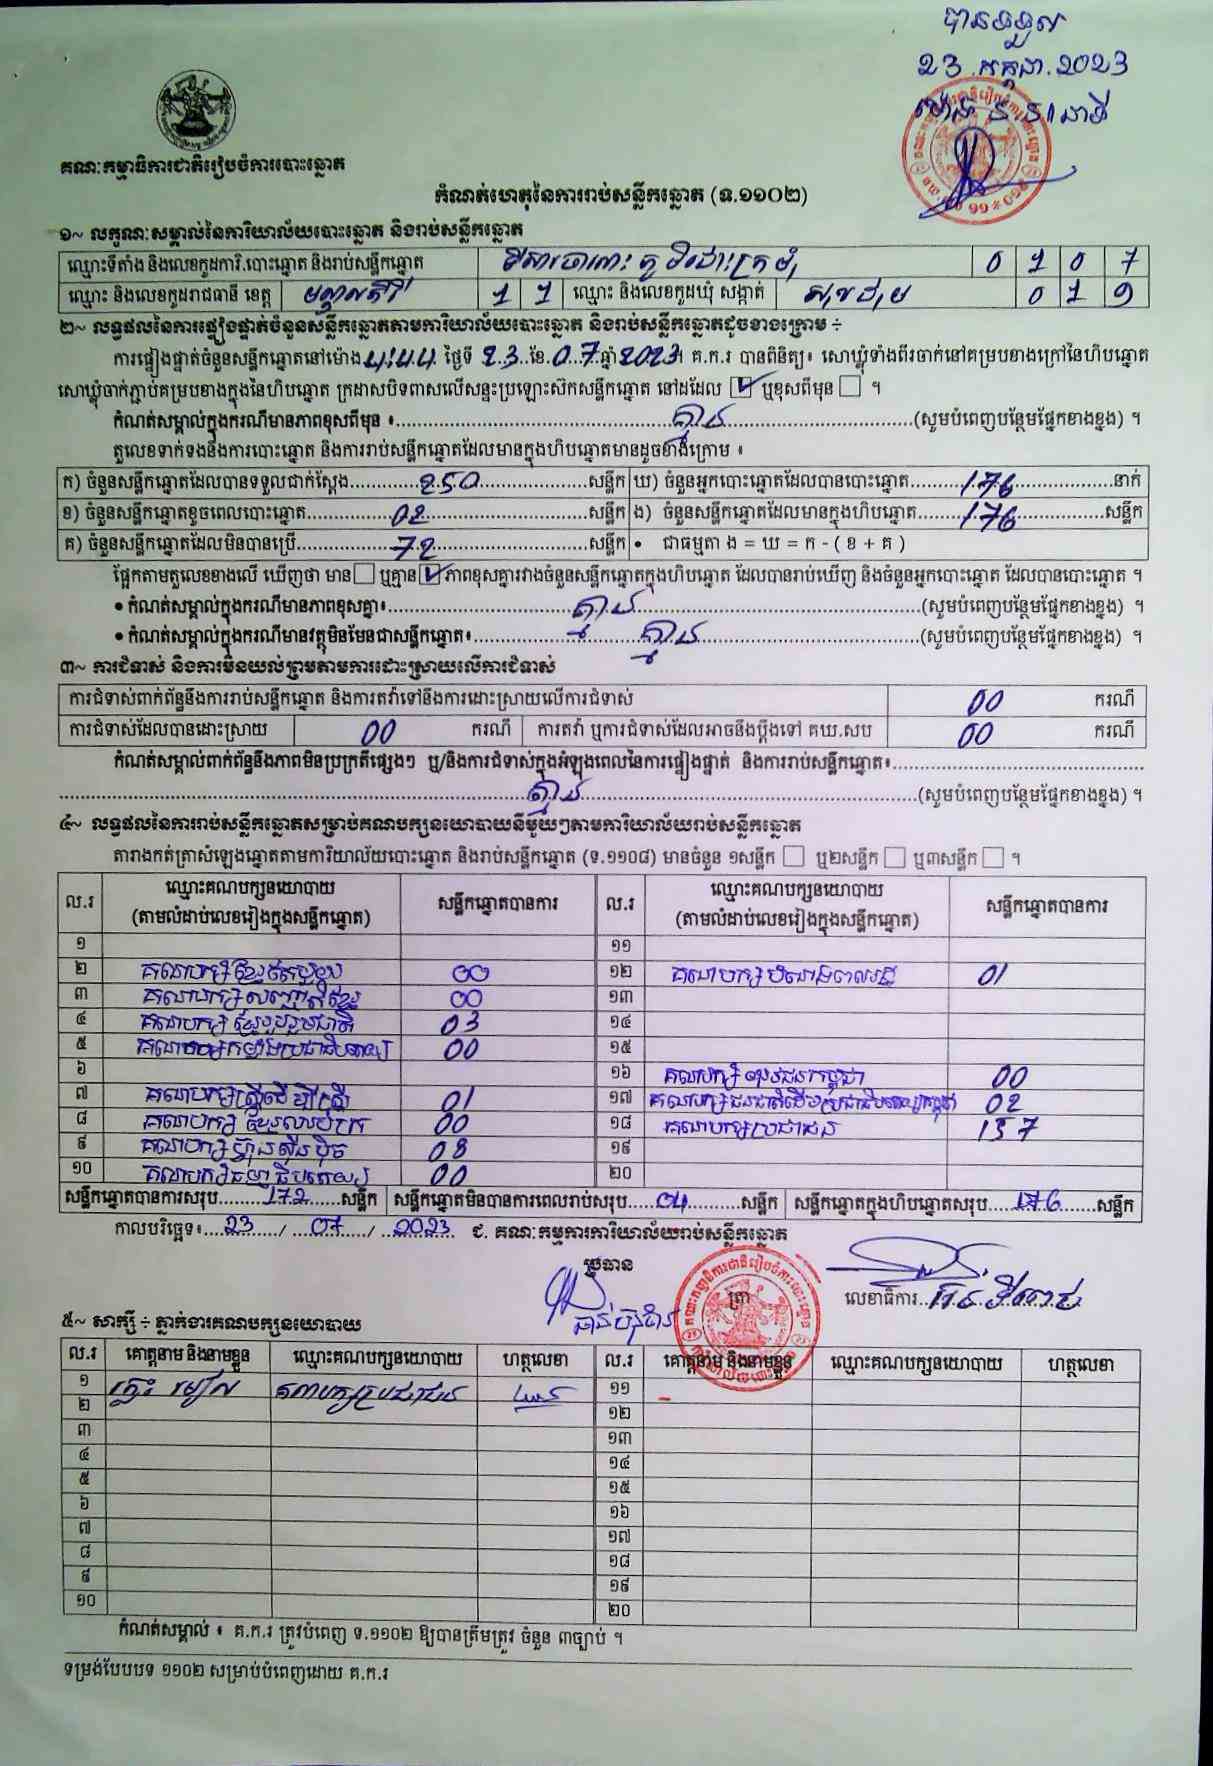 បានទទួល
23 កក្កដា 2023
គណៈកម្មាធិការជាតិរៀបចំការបោះឆ្នោត
កំណត់ហេតុនៃការរាប់សន្លឹកឆ្នោត (ទ.១១០២)
១~ លក្ខណៈសម្គាល់នៃការិយាល័យបោះឆ្នោត និងរាប់សន្លឹកឆ្នោត
ឈ្មោះទីតាំង និងលេខកូដការិ.បោះឆ្នោត និងរាប់សន្លឹកឆ្នោត 0 1 0 7
ឈ្មោះ និងលេខកូដរាជធានី ខេត្ត មណ្ឌលគិរី 1 1 ឈ្មោះ និងលេខកូដឃុំ សង្កាត់ 0 1 9
២~ លទ្ធផលនៃការផ្ទៀងផ្ទាត់ចំនួនសន្លឹកឆ្នោតតាមការិយាល័យបោះឆ្នោត និងរាប់សន្លឹកឆ្នោតដូចខាងក្រោម ÷
ការផ្ទៀងផ្ទាត់ចំនួនសន្លឹកឆ្នោតនៅម៉ោង ថ្ងៃទី 23 ខែ 07 ឆ្នាំ 2023។ គ.ក.រ បានពិនិត្យ៖ សោឃ្លុំទាំងពីរចាក់នៅគម្របខាងក្រៅនៃហិបឆ្នោត
សោឃ្លុំចាក់ភ្ជាប់គម្របខាងក្នុងនៃហិបឆ្នោត ក្រដាសបិទពាសលើសន្ទះប្រឡោះស៊កសន្លឹកឆ្នោត នៅដដែល ☑ ឬខុសពីមុន ☐ ។
កំណត់សម្គាល់ក្នុងករណីមានភាពខុសពីមុន ៖ គ្មាន (សូមបំពេញបន្ថែមផ្នែកខាងខ្នង) ។
តួលេខទាក់ទងនឹងការបោះឆ្នោត និងការរាប់សន្លឹកឆ្នោតដែលមានក្នុងហិបឆ្នោតមានដូចខាងក្រោម ៖
ក) ចំនួនសន្លឹកឆ្នោតដែលបានទទួលជាក់ស្តែង 250 សន្លឹក ឃ) ចំនួនអ្នកបោះឆ្នោតដែលបានបោះឆ្នោត 176 នាក់
ខ) ចំនួនសន្លឹកឆ្នោតខូចពេលបោះឆ្នោត 02 សន្លឹក ង) ចំនួនសន្លឹកឆ្នោតដែលមានក្នុងហិបឆ្នោត 176 សន្លឹក
គ) ចំនួនសន្លឹកឆ្នោតដែលមិនបានប្រើ 72 សន្លឹក • ជាធម្មតា ង = ឃ = ក - ( ខ + គ )
ផ្អែកតាមតួលេខខាងលើ ឃើញថា មាន ☐ ឬគ្មាន ☑ ភាពខុសគ្នារវាងចំនួនសន្លឹកឆ្នោតក្នុងហិបឆ្នោត ដែលបានរាប់ឃើញ និងចំនួនអ្នកបោះឆ្នោត ដែលបានបោះឆ្នោត ។
• កំណត់សម្គាល់ក្នុងករណីមានភាពខុសគ្នា៖ គ្មាន (សូមបំពេញបន្ថែមផ្នែកខាងខ្នង) ។
• កំណត់សម្គាល់ក្នុងករណីមានវត្ថុមិនមែនជាសន្លឹកឆ្នោត៖ គ្មាន (សូមបំពេញបន្ថែមផ្នែកខាងខ្នង) ។
៣~ ការជំទាស់ និងការមិនយល់ព្រមតាមការដោះស្រាយលើការជំទាស់
ការជំទាស់ពាក់ព័ន្ធនឹងការរាប់សន្លឹកឆ្នោត និងការតវ៉ាទៅនឹងការដោះស្រាយលើការជំទាស់ 00 ករណី
ការជំទាស់ដែលបានដោះស្រាយ 00 ករណី ការតវ៉ា ឬការជំទាស់ដែលអាចនឹងប្តឹងទៅ គឃ.សប 00 ករណី
កំណត់សម្គាល់ពាក់ព័ន្ធនឹងភាពមិនប្រក្រតីផ្សេងៗ ឬ/និងការជំទាស់ក្នុងអំឡុងពេលនៃការផ្ទៀងផ្ទាត់ និងការរាប់សន្លឹកឆ្នោត៖
គ្មាន (សូមបំពេញបន្ថែមផ្នែកខាងខ្នង) ។
៤~ លទ្ធផលនៃការរាប់សន្លឹកឆ្នោតសម្រាប់គណបក្សនយោបាយនីមួយៗតាមការិយាល័យរាប់សន្លឹកឆ្នោត
តារាងកត់ត្រាសំឡេងឆ្នោតតាមការិយាល័យបោះឆ្នោត និងរាប់សន្លឹកឆ្នោត (ទ.១១០៨) មានចំនួន ១សន្លឹក ☐ ឬ២សន្លឹក ☐ ឬ៣សន្លឹក ☐ ។
ល.រ ឈ្មោះគណបក្សនយោបាយ (តាមលំដាប់លេខរៀងក្នុងសន្លឹកឆ្នោត) សន្លឹកឆ្នោតបានការ ល.រ ឈ្មោះគណបក្សនយោបាយ (តាមលំដាប់លេខរៀងក្នុងសន្លឹកឆ្នោត) សន្លឹកឆ្នោតបានការ
១ ១១
២ គណបក្សខ្មែរតែមួយ 00 ១២ គណបក្ស 01
៣ គណបក្សសញ្ជាតិខ្មែរ 00 ១៣
៤ គណបក្សខ្មែររួបរួមជាតិ 03 ១៤
៥ គណបក្សកម្លាំងប្រជាធិបតេយ្យ 00 ១៥
៦ ១៦ គណបក្សយុវជនកម្ពុជា 00
៧ គណបក្សស្ត្រីដើម្បីស្ត្រី 01 ១៧ គណបក្សជនជាតិដើមប្រជាធិបតេយ្យកម្ពុជា 02
៨ គណបក្ស 00 ១៨ គណបក្សប្រជាជន 157
៩ គណបក្សហ្វ៊ុនស៊ិនប៉ិច 08 ១៩
១០ គណបក្សធម្មាធិបតេយ្យ 00 ២០
សន្លឹកឆ្នោតបានការសរុប 172 សន្លឹក សន្លឹកឆ្នោតមិនបានការពេលរាប់សរុប 04 សន្លឹក សន្លឹកឆ្នោតក្នុងហិបឆ្នោតសរុប 176 សន្លឹក
កាលបរិច្ឆេទ៖ 23 / 07 / 2023 ជ. គណៈកម្មការការិយាល័យរាប់សន្លឹកឆ្នោត
ប្រធាន ត្រា លេខាធិការ
៥~ សាក្សី ÷ ភ្នាក់ងារគណបក្សនយោបាយ
ល.រ គោត្តនាម និងនាមខ្លួន ឈ្មោះគណបក្សនយោបាយ ហត្ថលេខា ល.រ គោត្តនាម និងនាមខ្លួន ឈ្មោះគណបក្សនយោបាយ ហត្ថលេខា
១ គណបក្សប្រជាជន ១១
២ ១២
៣ ១៣
៤ ១៤
៥ ១៥
៦ ១៦
៧ ១៧
៨ ១៨
៩ ១៩
១០ ២០
កំណត់សម្គាល់ ៖ គ.ក.រ ត្រូវបំពេញ ទ.១១០២ ឱ្យបានត្រឹមត្រូវ ចំនួន ៣ច្បាប់ ។
ទម្រង់បែបបទ ១១០២ សម្រាប់បំពេញដោយ គ.ក.រ